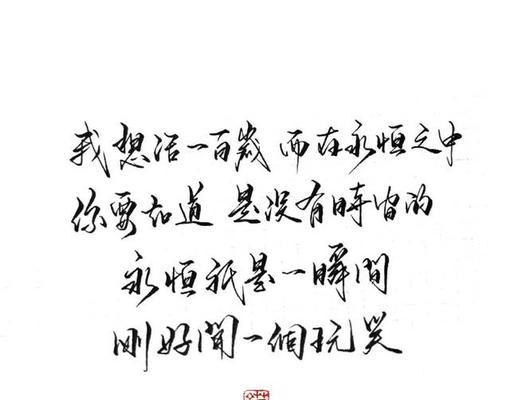 我想活一百歲 而在永恒之中
你要知道 是没有時间的
永恒祇是一瞬間
刚好開一個玩笑